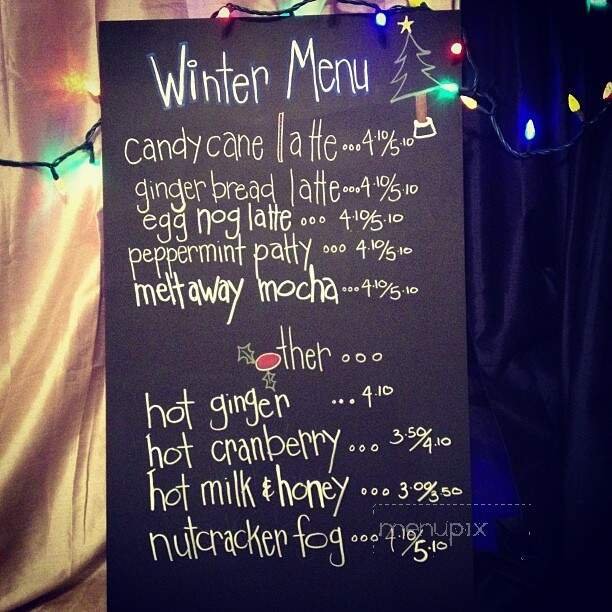 Winter Menu
candycane latte...4.10/5.10
ginger bread latte...4.10/5.10
egg nog latte ... 4.10/5.10
peppermint patty ... 4.10/5.10
meltaway mocha...4.10/5.10
other ...
hot ginger ... 4.10
hot cranberry ... 3.50/4.10
hot milk & honey ... 3.00/3.50
nutcracker fog ... 4.10/5.10
menupix